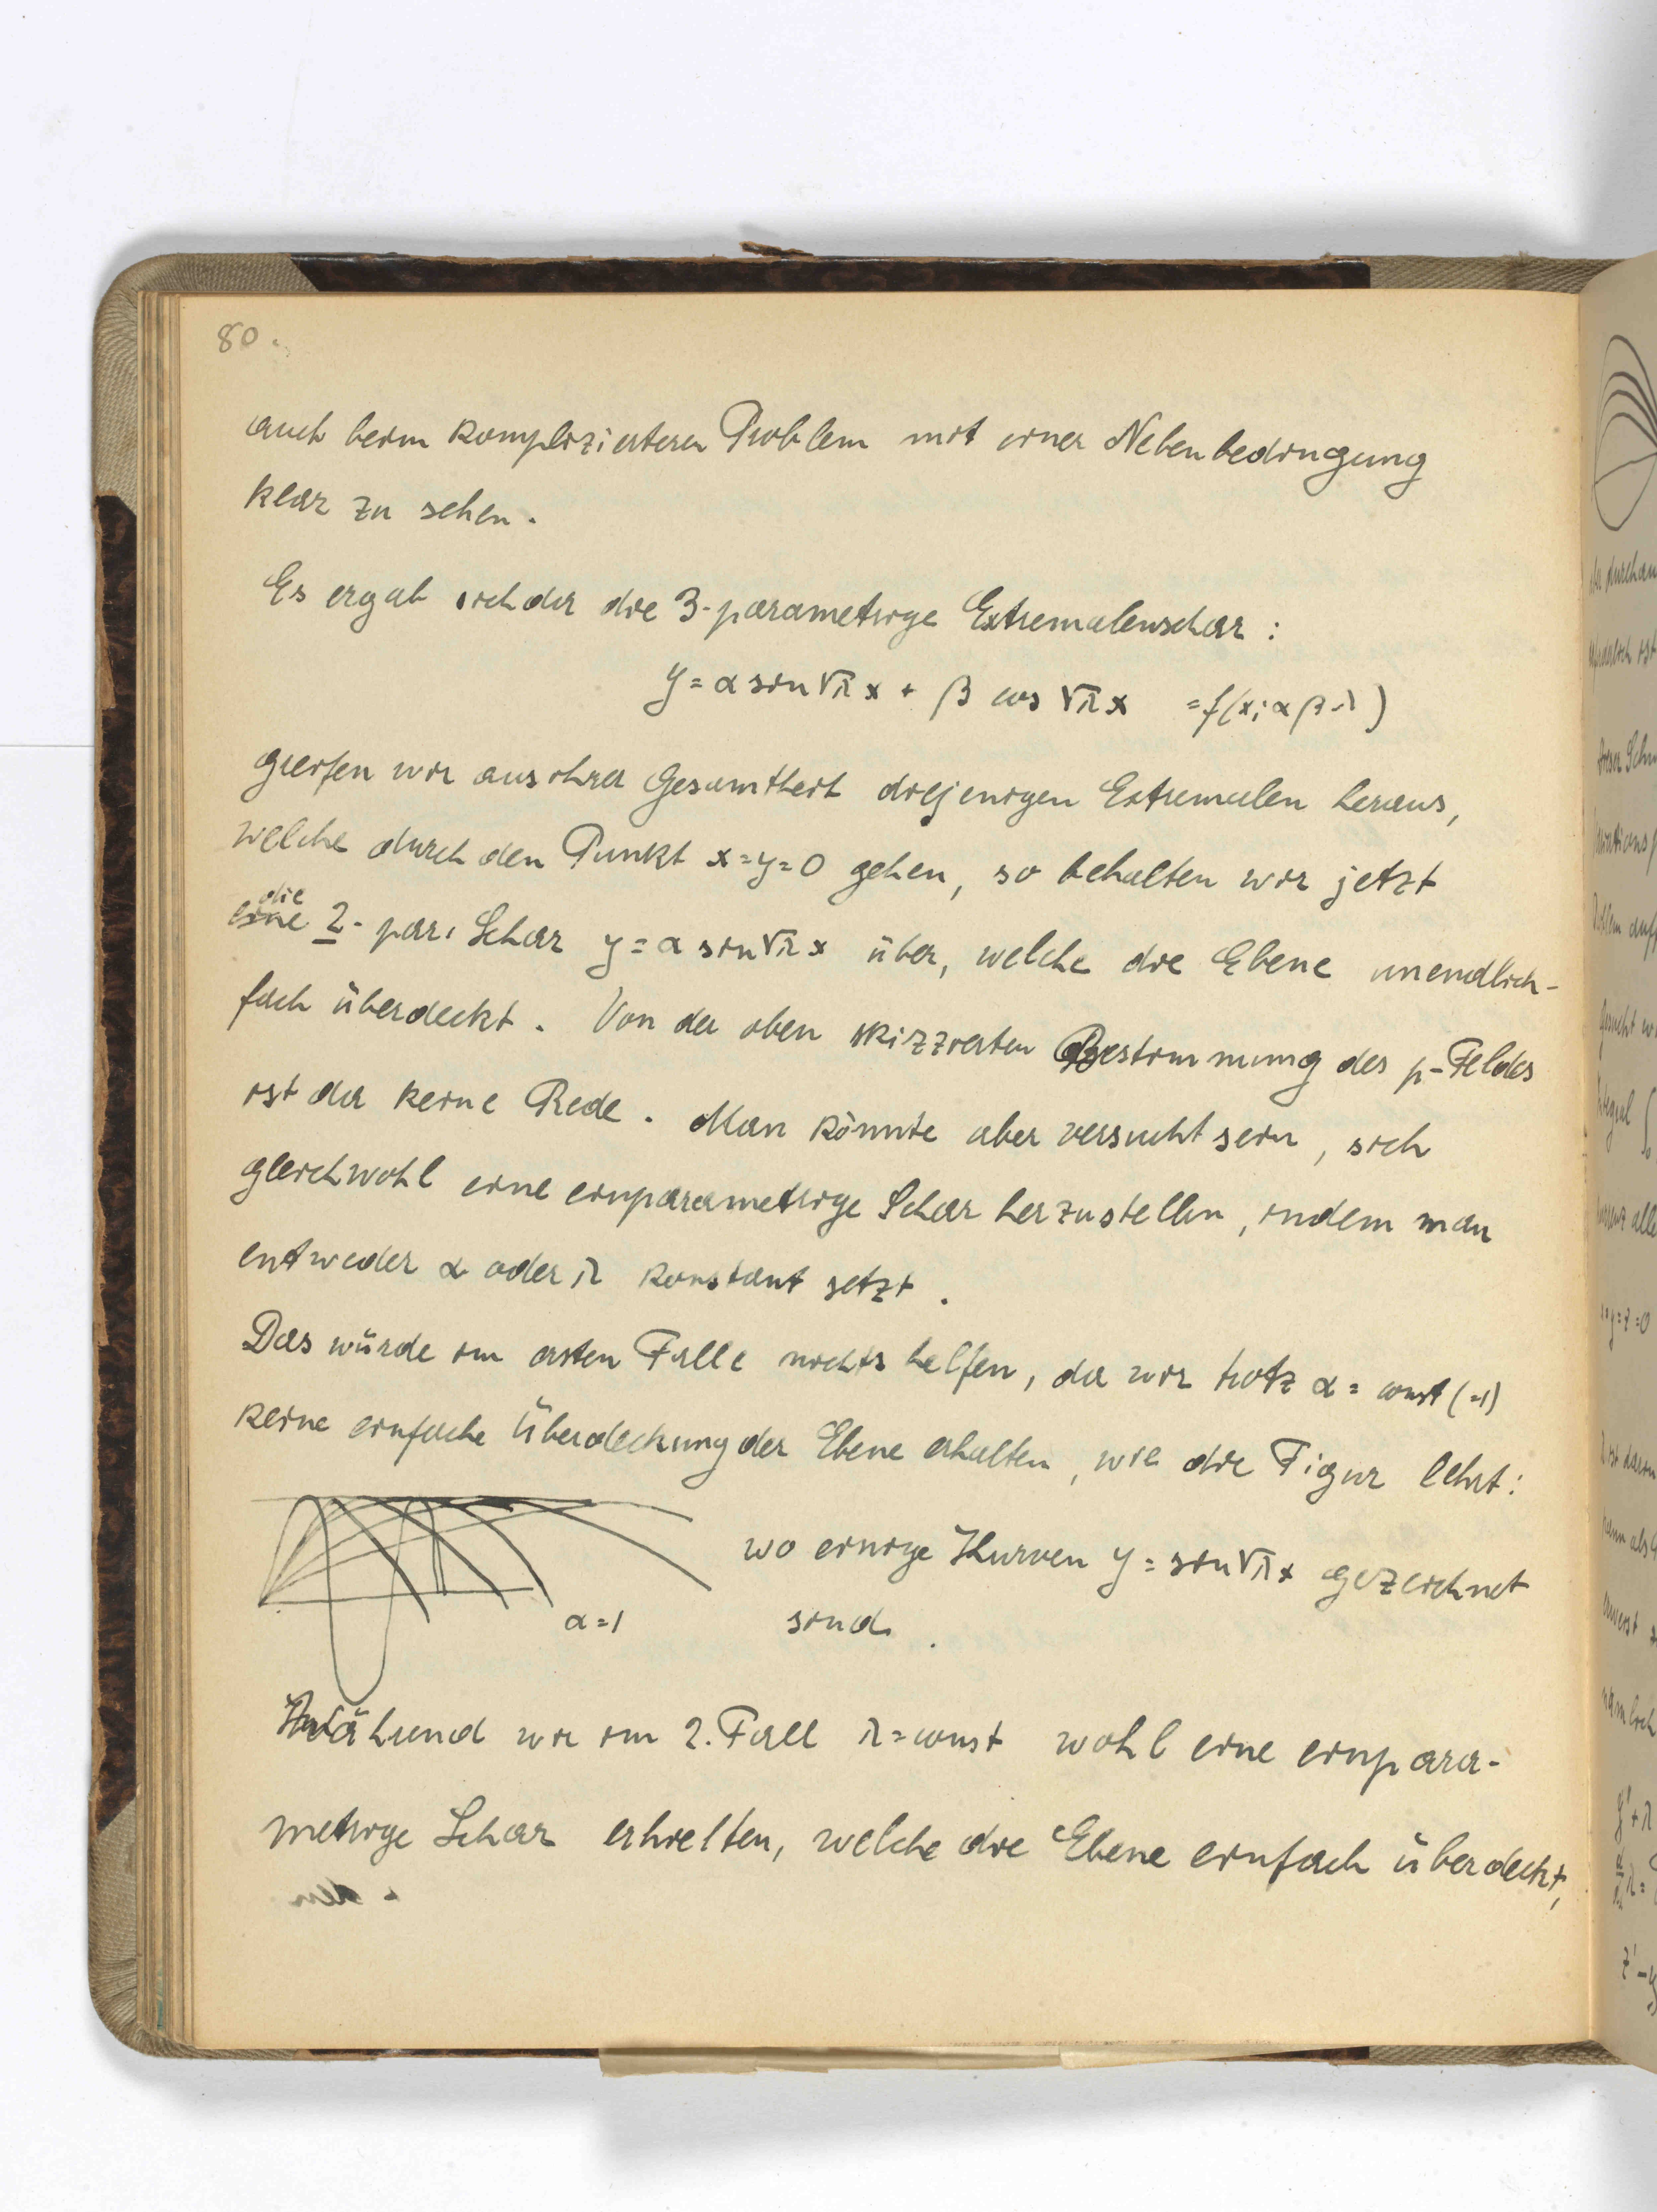 80.
auch beim komplizierteren Problem mit einer Nebenbedingung
klar zu sehen.
Es ergab sich da die 3-parametrige Extremalenschar:
y = α sin √λ x + β cos √λ x = f(x; α β λ)
greifen wir aus ihrer Gesamtheit diejenigen Extremalen heraus,
welche durch den Punkt x=y=0 gehen, so behalten wir jetzt
die
eine 2-par. Schar y = α sin √λ x über, welche die Ebene unendlich-
fach überdeckt. Von der oben skizzierten Bestimmung des p-Feldes
ist da keine Rede. Man könnte aber versucht sein, sich
gleichwohl eine einparametrige Schar herzustellen, indem man
entweder α oder λ konstant setzt.
Das würde im ersten Falle nichts helfen, da wir trotz α = const (=1)
keine einfache Überdeckung der Ebene erhalten, wie die Figur lehrt:
wo einige Kurven y = sin √λ x gezeichnet
α=1
sind.
Während wir im 2. Fall λ=const wohl eine einpara-
metrige Schar erhielten, welche die Ebene einfach überdeckt,